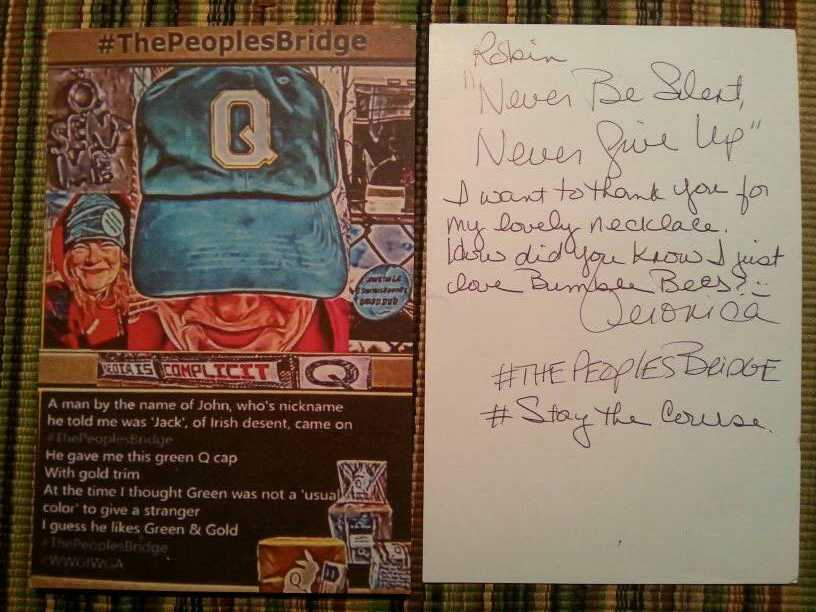 #ThePeoplesBridge
Q
MEDIA IS COMPLICIT Q
A man by the name of John, who's nickname
he told me was 'Jack', of Irish desent, came on
#ThePeoplesBridge
He gave me this green Q cap
With gold trim
At the time I thought Green was not a 'usual
color' to give a stranger
I guess he likes Green & Gold
#ThePeoplesBridge
#WWG1WGA
Q
Robin
"Never Be Silent,
Never Give Up"
I want to thank you for
my lovely necklace.
How did you know I just
love Bumble Bees?
Veronica
#THEPEOPLESBRIDGE
#Stay The Course.